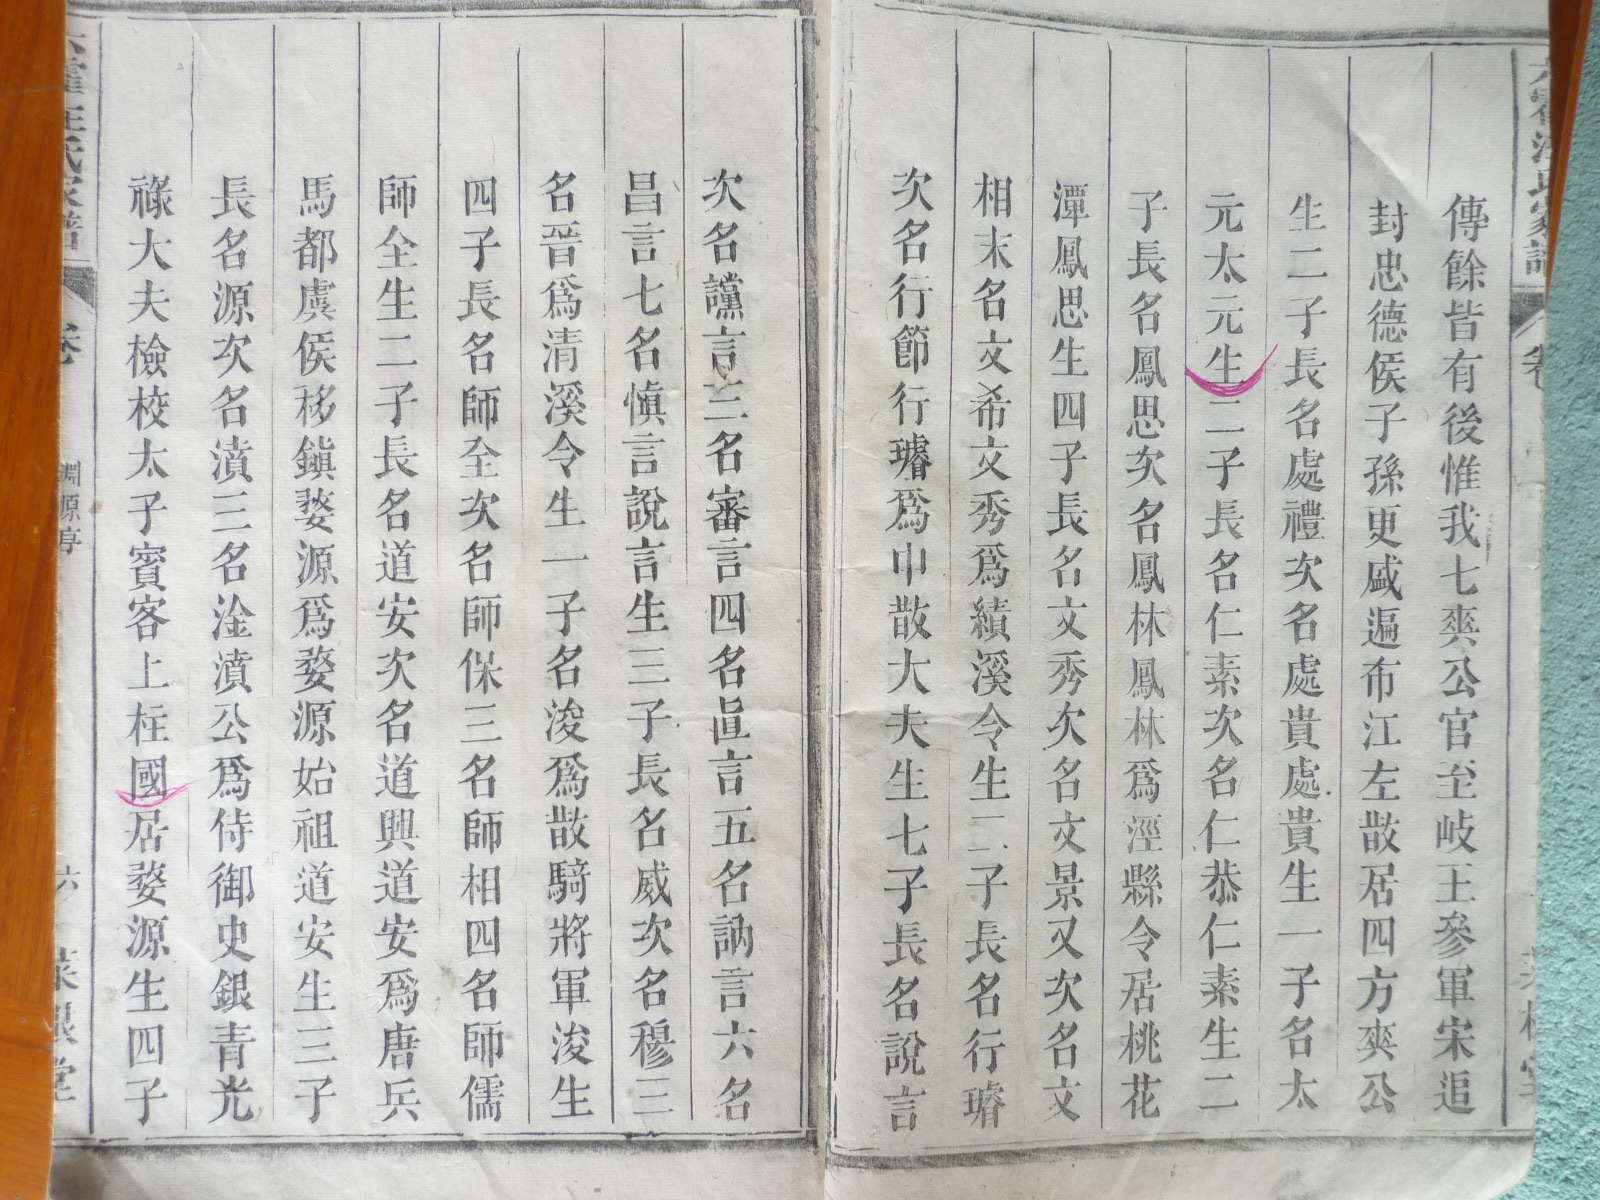 傳餘皆有後惟我七爽公官至岐王參軍宋追
封忠德侯子孫更盛遍布江左散居四方爽公
生二子長名處禮次名處貴處貴生一子名太
元太元生二子長名仁素次名仁恭仁素生二
子長名鳳思次名鳳林鳳林為涇縣令居桃花
潭鳳思生四子長名文秀次名文景又次名文
相末名文希文秀爲績溪令生二子長名行璿
次名行節行璿爲中散大夫生七子長名說言
次名讜言三名審言四名直言五名訥言六名
昌言七名慎言說言生三子長名威次名穆三
名晉爲清溪令生一子名浚爲散騎將軍浚生
四子長名師全次名師保三名師相四名師儒
師全生二子長名道安次名道興道安爲唐兵
馬都虞侯移鎮婺源爲婺源始祖道安生三子
長名源次名濆三名淦濆公爲侍御史銀青光
祿大夫檢校太子賓客上柱國居婺源生四子
汪氏家譜
卷
淵源亭
六